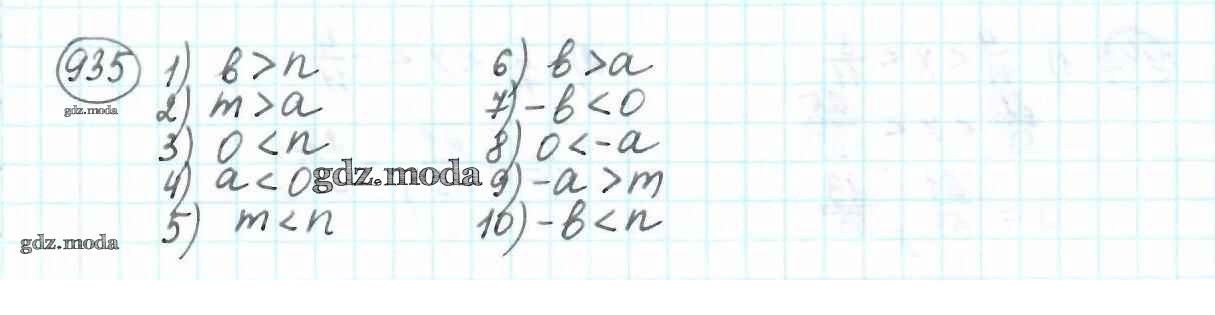 935 1) в > n 6) в > a
gdz.moda
2) m > a 7) -в < 0
3) 0 < n 8) 0 < -a
4) a < 0 gdz.moda 9) -a > m
5) m < n 10) -в < n
gdz.moda